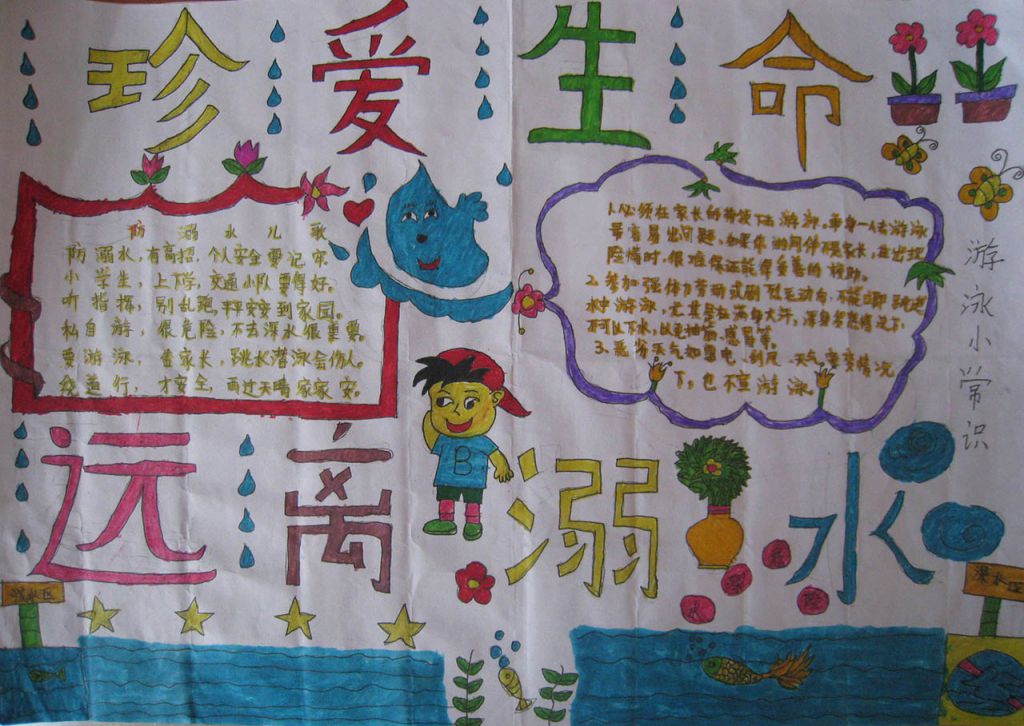 珍爱生命
防溺水儿歌
防溺水,有高招,个人安全要记牢
小学生,上下学,交通小队要得好。
听指挥,别乱跑,平平安安到家园。
私自游,很危险,不去深水很重要。
要游泳,查家长,跳水潜泳会伤人。
绕道行,才安全,雨过天晴家家安。
1、必须在家长的带领下去游泳。单身一人去游泳
最容易出问题,如果你的同伴不是家长,在出现
险情时,很难保证能得妥善的救助。
2、参加强体力劳动或剧烈运动后,不能立即跳进
水中游泳,尤其是在满身大汗,浑身发热情况下,
不可以下水,以免抽筋、感冒等。
3、恶劣天气如雷电、刮风、天气突变情况
下,也不宜游泳。
游泳小常识
远离溺水
深水区
危
险
水
深水区
B